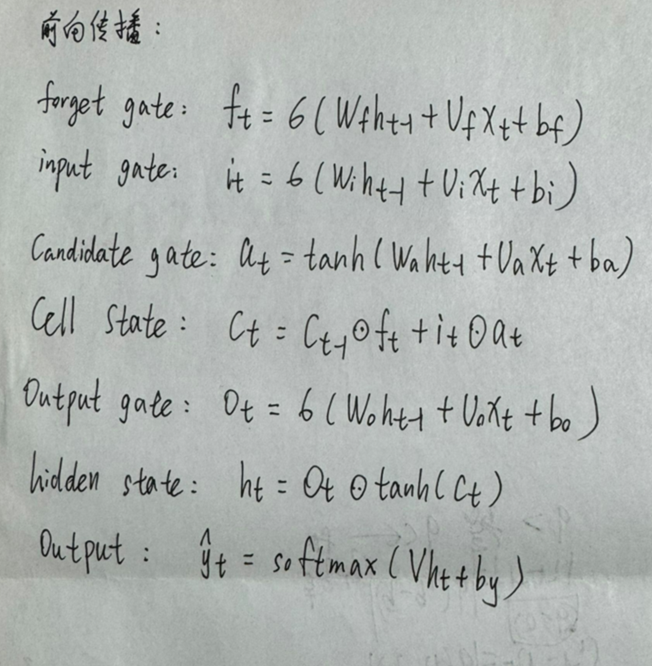 前向传播:
forget gate: f_t = σ(W_f h_{t-1} + U_f x_t + b_f)
input gate: i_t = σ(W_i h_{t-1} + U_i x_t + b_i)
Candidate gate: a_t = tanh(W_a h_{t-1} + U_a x_t + b_a)
Cell State: C_t = C_{t-1} ⊙ f_t + i_t ⊙ a_t
Output gate: O_t = σ(W_o h_{t-1} + U_o x_t + b_o)
hidden state: h_t = O_t ⊙ tanh(C_t)
Output: ŷ_t = softmax(V h_t + b_y)